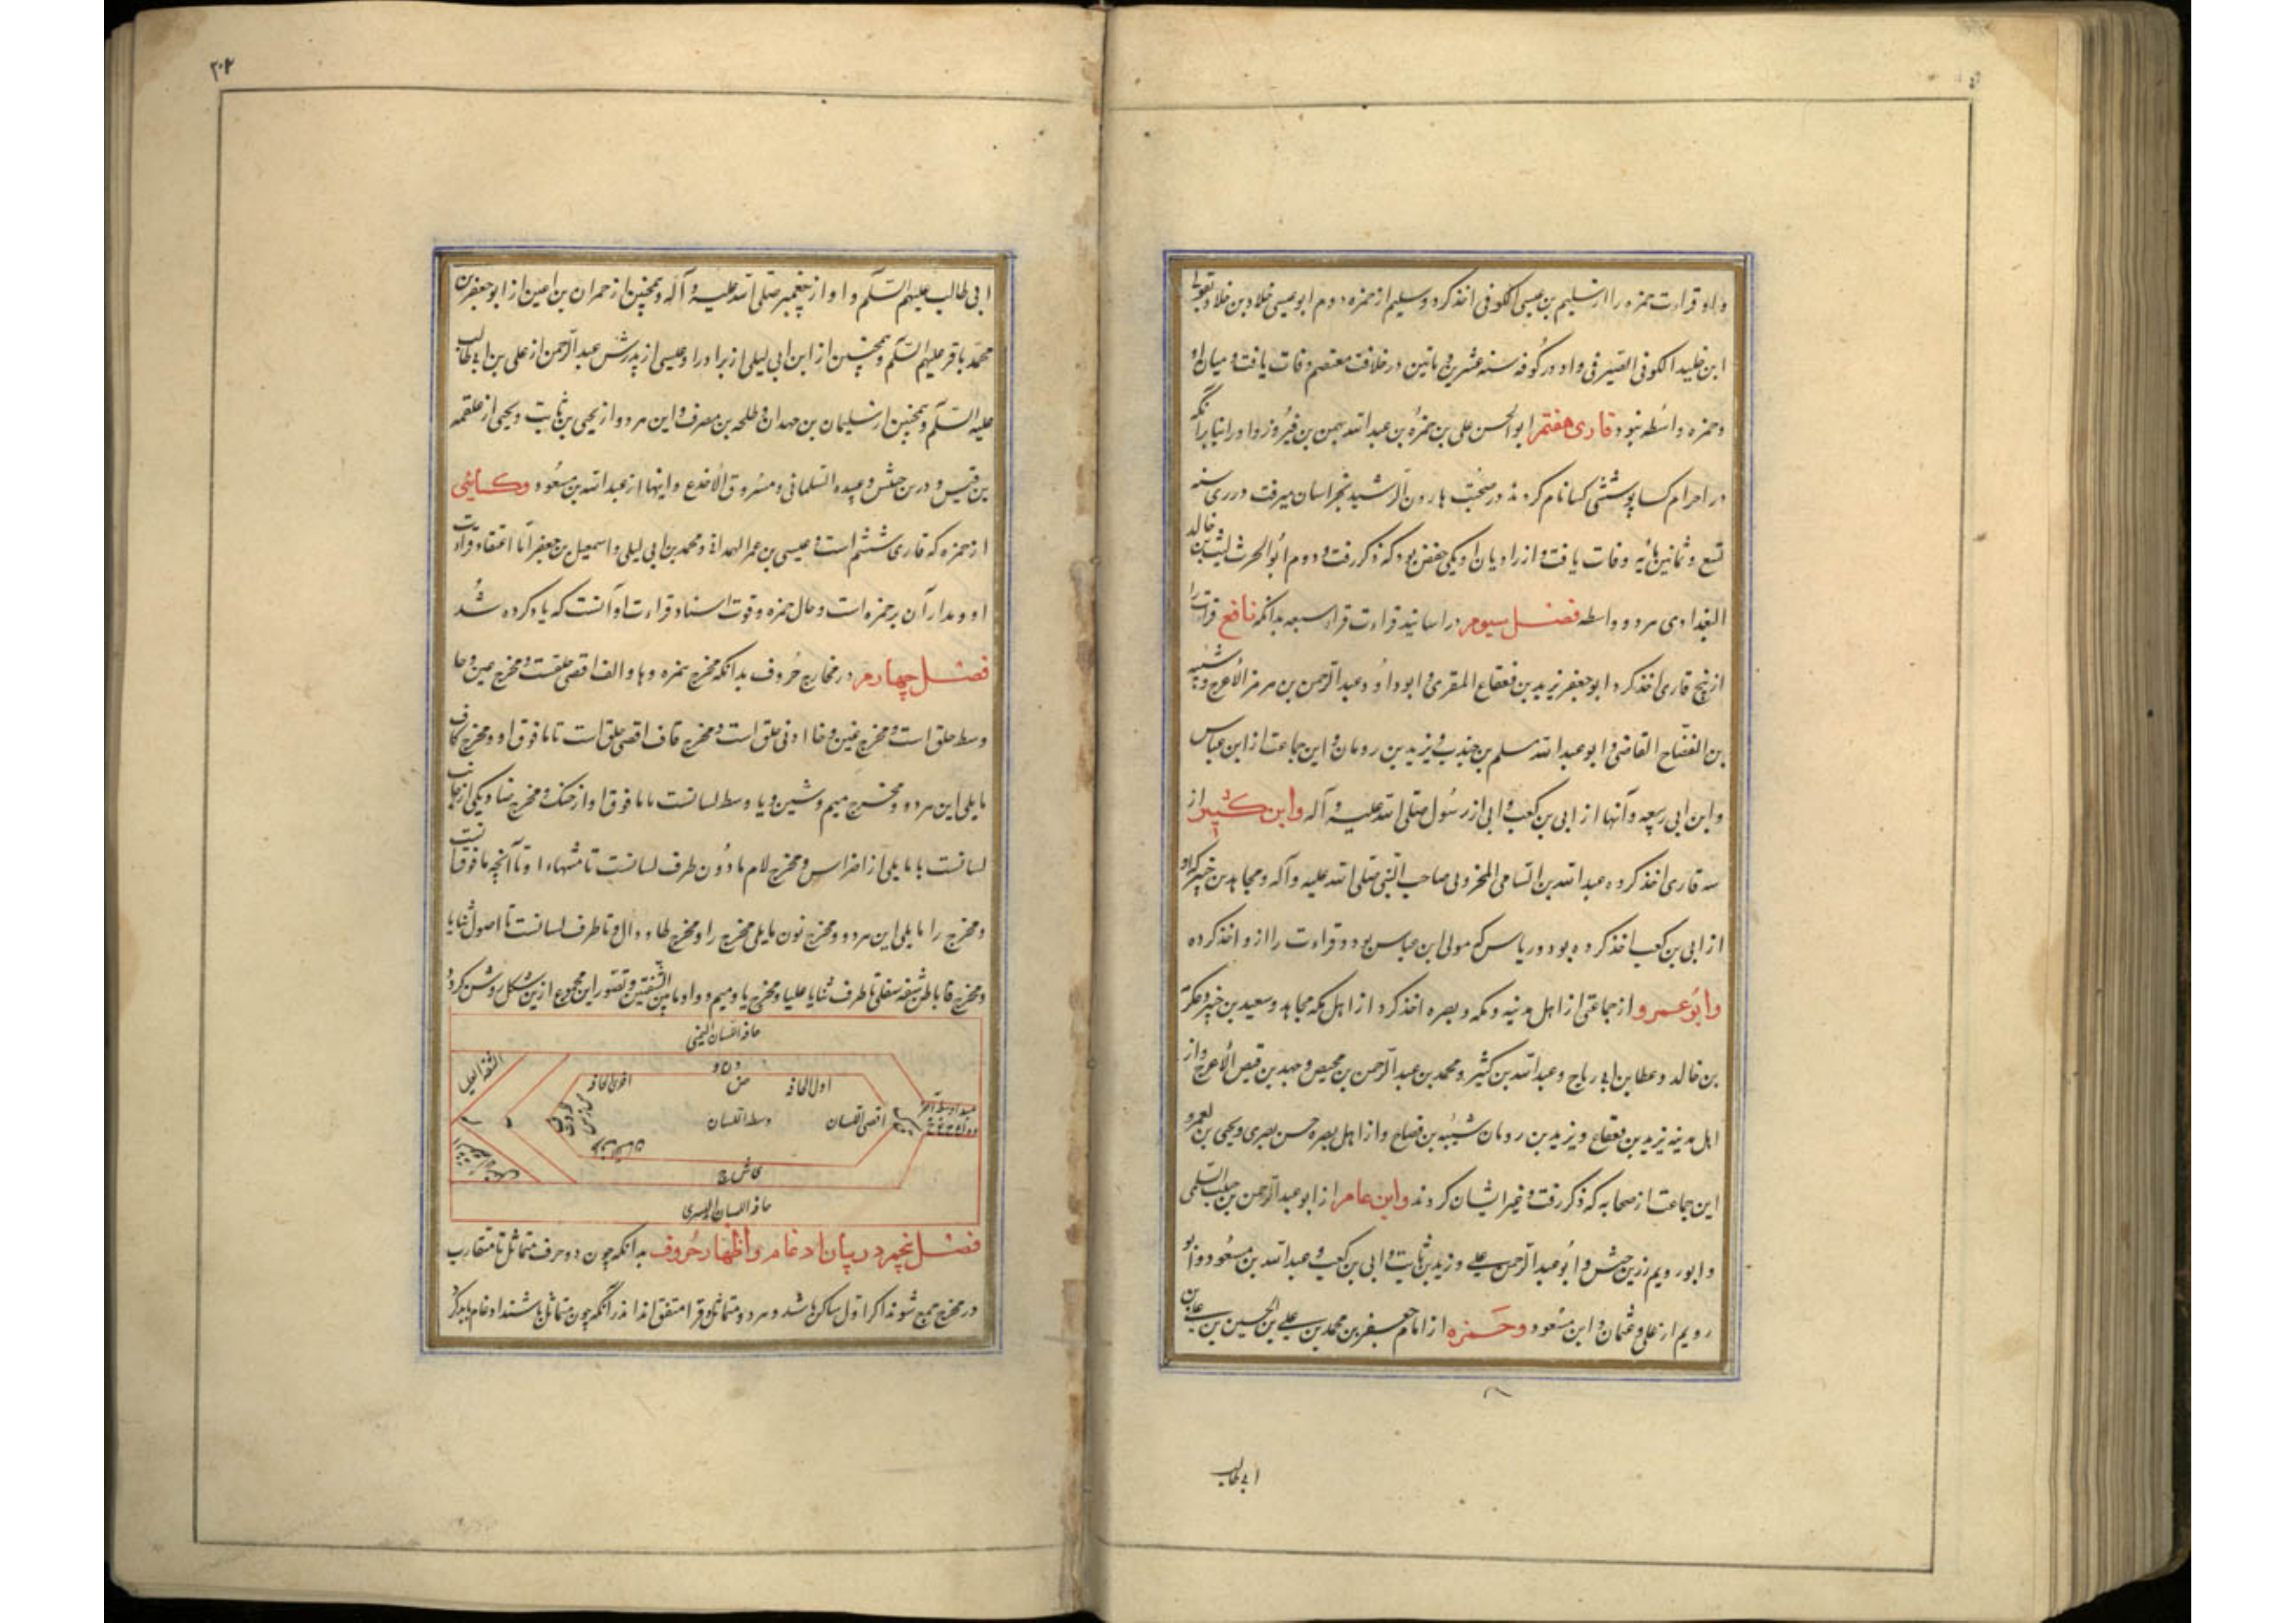 و او قراءت حمزه را از سلیم بن عیسی الکوفی اخذ کرد و سلیم از حمزه دوم ابو عیسی خلاد بن خلاد
ابن خلید الکوفی الصیرفی و او در کوفه سنه عشرین و مأتین در خلافت معتصم وفات یافت و میان او
و حمزه واسطه نبود قاری هفتم ابو الحسن علی بن حمزه بن عبد الله بهمن بن فیروز و او را بنا برانکه
در احرام کسا پوشیدی کسا نام کردند در صحبت هارون الرشید بخراسان میرفت در ری سنه
تسع و ثمانین و مایه وفات یافت و از راویان او یکی حفص بود که ذکر رفت و دوم ابو الحرث لیث بن خالد
البغدادی هر دو بواسطه فصل سیوم در اسانید قراءت قراء سبعه بدانکه نافع قراءت را
از پنج قاری اخذ کرد ابو جعفر یزید بن قعقاع المقری و ابو داود عبد الرحمن بن هرمز الاعرج و شیبه
بن النصاح القاضی و ابو عبد الله مسلم بن جندب و یزید بن رومان و این جماعت از ابن عباس
و ابن ابی ربیعه و آنها از ابی بن کعب و ابی از رسول صلی الله علیه و آله و ابن کثیر از
سه قاری اخذ کرده عبد الله بن السامی المخزومی صاحب النبی صلی الله علیه و آله و مجاهد بن جبیر که او
از ابی بن کعب اخذ کرده بود و درباس که مولی ابن عباس بود و قراءت را از و اخذ کرده
و ابو عمرو از جماعتی از اهل مدینه و مکه و بصره اخذ کرد از اهل مکه مجاهد و سعید بن جبیر و عکرمة
بن خالد و عطا بن ابی رباح و عبد الله بن کثیر و محمد بن عبد الرحمن بن محیص و حمید بن قیس الاعرج و از
اهل مدینه یزید بن قعقاع و یزید بن رومان شیبه بن نصاح و از اهل بصره حسن بصری و یحیی بن یعمر و
این جماعت از صحابه که ذکر رفت و غیر ایشان کردند و ابن عامر از ابو عبد الرحمن بن حبیب السلمی
و ابو رویم زر بن حبش و ابو عبد الرحمن علی و زید بن ثابت و ابی بن کعب و عبد الله بن مسعود و ابو
رویم از علی و عثمان و ابن مسعود و حمزه از امام جعفر بن محمد بن علی بن الحسین بن علی بن
ابی طالب
۲۰۲
ابی طالب علیهم السلام و او از پیغمبر صلی الله علیه و آله و همچنین از حمران بن اعین از ابو جعفر بن
محمد باقر علیهم السلام و همچنین از ابن ابی لیلی از برادر او عیسی از پدرش عبد الرحمن از علی بن ابی طالب
علیه السلام و همچنین از سلیمان بن مهدان و طلحه بن مصرف و این هر دو از یحیی بن ثابت و یحیی از علقمه
بن قیس و زر بن حبش و عبیده السلمانی و مسروق الاخدع و اینها از عبد الله بن مسعود و کسائی
از حمزه که قاری ششم است و عیسی بن عمر الهمدانی و محمد بن ابی لیلی و اسمعیل بن جعفر اما اعتقاد قراءت
او و مدار آن بر حمزه است و حال حمزه و قوت اسناد قراءت او آنست که یاد کرده شد
فصل چهارم در مخارج حروف بدانکه مخرج همزه و ها و الف اقصی حلقست و مخرج عین و حا
وسط حلق است و مخرج غین و خا ادنی حلق است و مخرج قاف اقصی حلق است تا ما فوق او و مخرج کاف
ما یلی این هر دو و مخرج جیم و شین و یا وسط لسانست با ما فوق او از حنک و مخرج ضاد یکی از جانب
لسانست با ما یلی از اضراس و مخرج لام ما دون طرف لسانست تا منتهاء او تا آنچه ما فوق آنست
و مخرج را ما یلی این هر دو و مخرج نون ما یلی مخرج را و مخرج طا و دال و تا طرف لسانست تا اصول ثنایا
و مخرج فا باطن شفه سفلی تا طرف ثنایا علیا و مخرج با و میم و واو ما بین الشفتین و تصور این مجموع ازین شکل روشن کردد
حافه اللسان الیمنی
الشفه العلیا
اخری الحافه
ض
اول الحافه
وسط اللسان
اقصی اللسان
حافه اللسان الیسری
فصل پنجم در بیان ادغام و اظهار حروف بدانکه چون دو حرف متماثل تا متقارب
در مخرج جمع شوند اکر اول ساکن باشد و هر دو متماثل و قرا متفق اند اندر آنکه چون متماثل باشند ادغام باید کرد